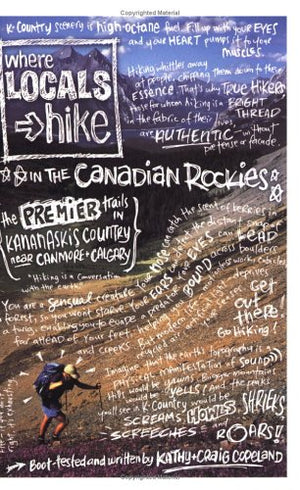 Copyrighted Material
K-Country scenery is high-octane fuel. Fill up with your EYES
and your HEART pumps it to your
MUSCLES.
where
LOCALS
hike
Hiking whittles away
at people, chipping them down to their
Essence. That's why TRUE HIKERS
those for whom hiking is a BRIGHT
THREAD
in the fabric of their lives,
are AUTHENTIC without
pretense or facade.
IN THE CANADIAN ROCKIES
the PREMIER trails
IN
KANANASKIS COUNTRY
near CANMORE + CALGARY
"Hiking is a Conversation
with the earth."
You are a sensual creature. Your nose can catch the scent of berries in
a forest, so you won't starve. Your EARS can
enabling you to evade a predator. Your EYES can LEAP
far ahead of your feet,
BOUND
across boulders
and creeks. But
deprives
Get
out
there!
Go Hiking!
Imagine that the earth's topography is a
Physical Manifestation of SOUND
Hills would be yawns. Bigger mountains
would be YELLS! And the peaks
you'll see in K-Country would be
SCREAMS, HOWLERS, SHRIEKS,
SCREECHES and ROARS!!
Boot-tested and written by KATHY + CRAIG COPELAND
Copyrighted Material